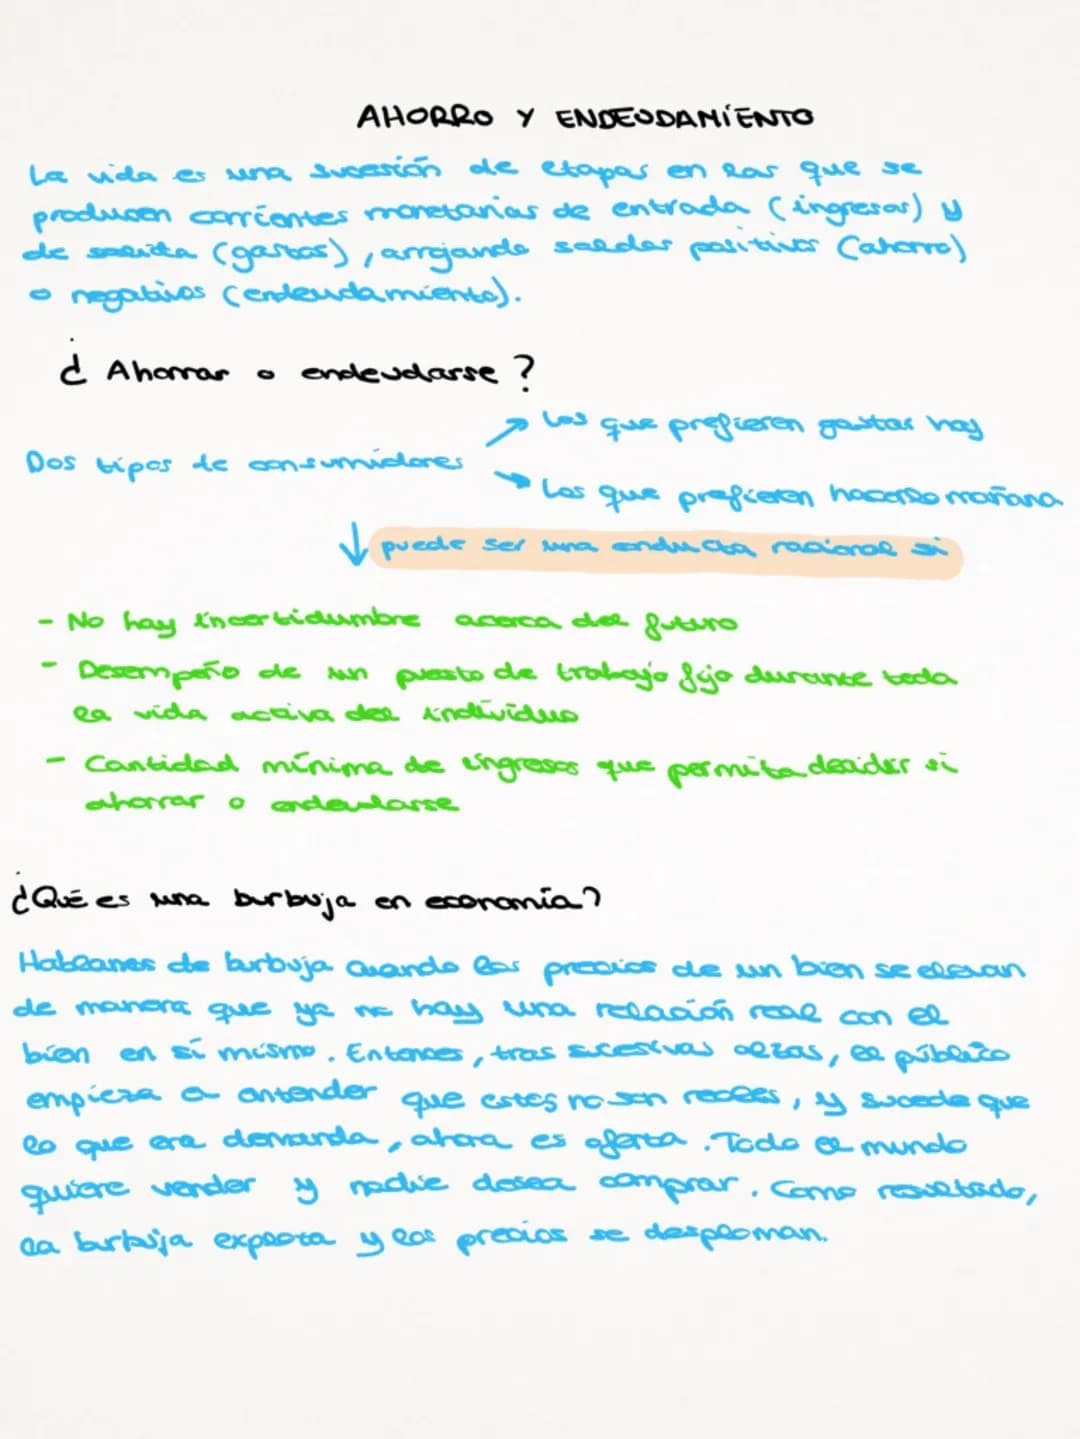 AHORRO Y ENDEUDAMIENTO
La vida es una sucesión de etapas en las que se
producen corrientes monetarias de entrada (ingresos) y
de salida (gastos), arrojando saldos positivos (ahorro)
o negativos (endeudamiento).
¿Ahorrar o endeudarse?
Los que prefieren gastar hoy
Dos tipos de consumidores
Los que prefieren hacerlo mañana
puede ser una conducta racional si
- No hay incertidumbre acerca del futuro
- Desempeño de un puesto de trabajo fijo durante toda
la vida activa del individuo
- Cantidad mínima de ingresos que permita decidir si
ahorrar o endeudarse
¿Qué es una burbuja en economía?
Hablamos de burbuja cuando los precios de un bien se elevan
de manera que ya no hay una relación real con el
bien en sí mismo. Entonces, tras sucesivas alzas, el público
empieza a entender que estos no son reales, y sucede que
lo que era demanda, ahora es oferta. Todo el mundo
quiere vender y nadie desea comprar. Como resultado,
la burbuja explota y los precios se desploman.